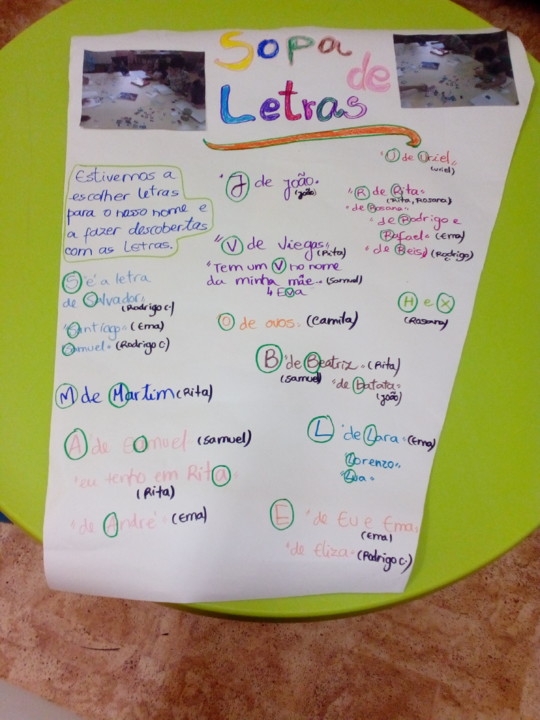 Sopa de
Letras
Estivemos a
escolher letras
para o nosso nome e
a fazer descobertas
com as letras.
"J de joão"
(João)
"U de Uriel"
(Uriel)
"R de Rita"
(Rita, Rosana)
"de Rosana"
"de Rodrigo e
Rafael" (Ema)
"de Reis" (Rodrigo)
"V de Viegas" (Rita)
"Tem um V no nome
da minha mãe" (Samuel)
↳ Eva
"S é a letra
de Salvador" (Rodrigo C.)
"Santiago" (Ema)
Samuel" (Rodrigo C)
"O de ovos" (Camila)
H e X
(Rosana)
B "de Beatriz" (Rita)
(Samuel)
"de Batata"
(João)
M de Martim (Rita)
A de Samuel (Samuel)
"eu tenho em Rita
(Rita)
"de André" (Ema)
L "de Lara" (Ema)
Lorenzo"
"Lua"
E "de Eu e Ema"
(Ema)
"de Eliza" (Rodrigo C.)